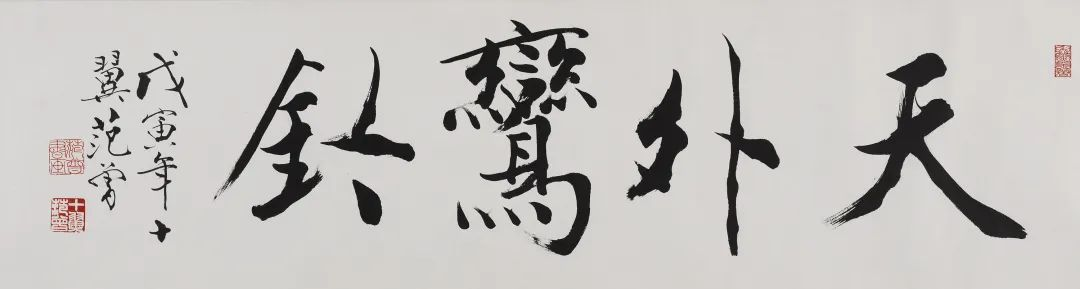 天外鸞鈴
戊寅年十
翼范曾
十翼范曾